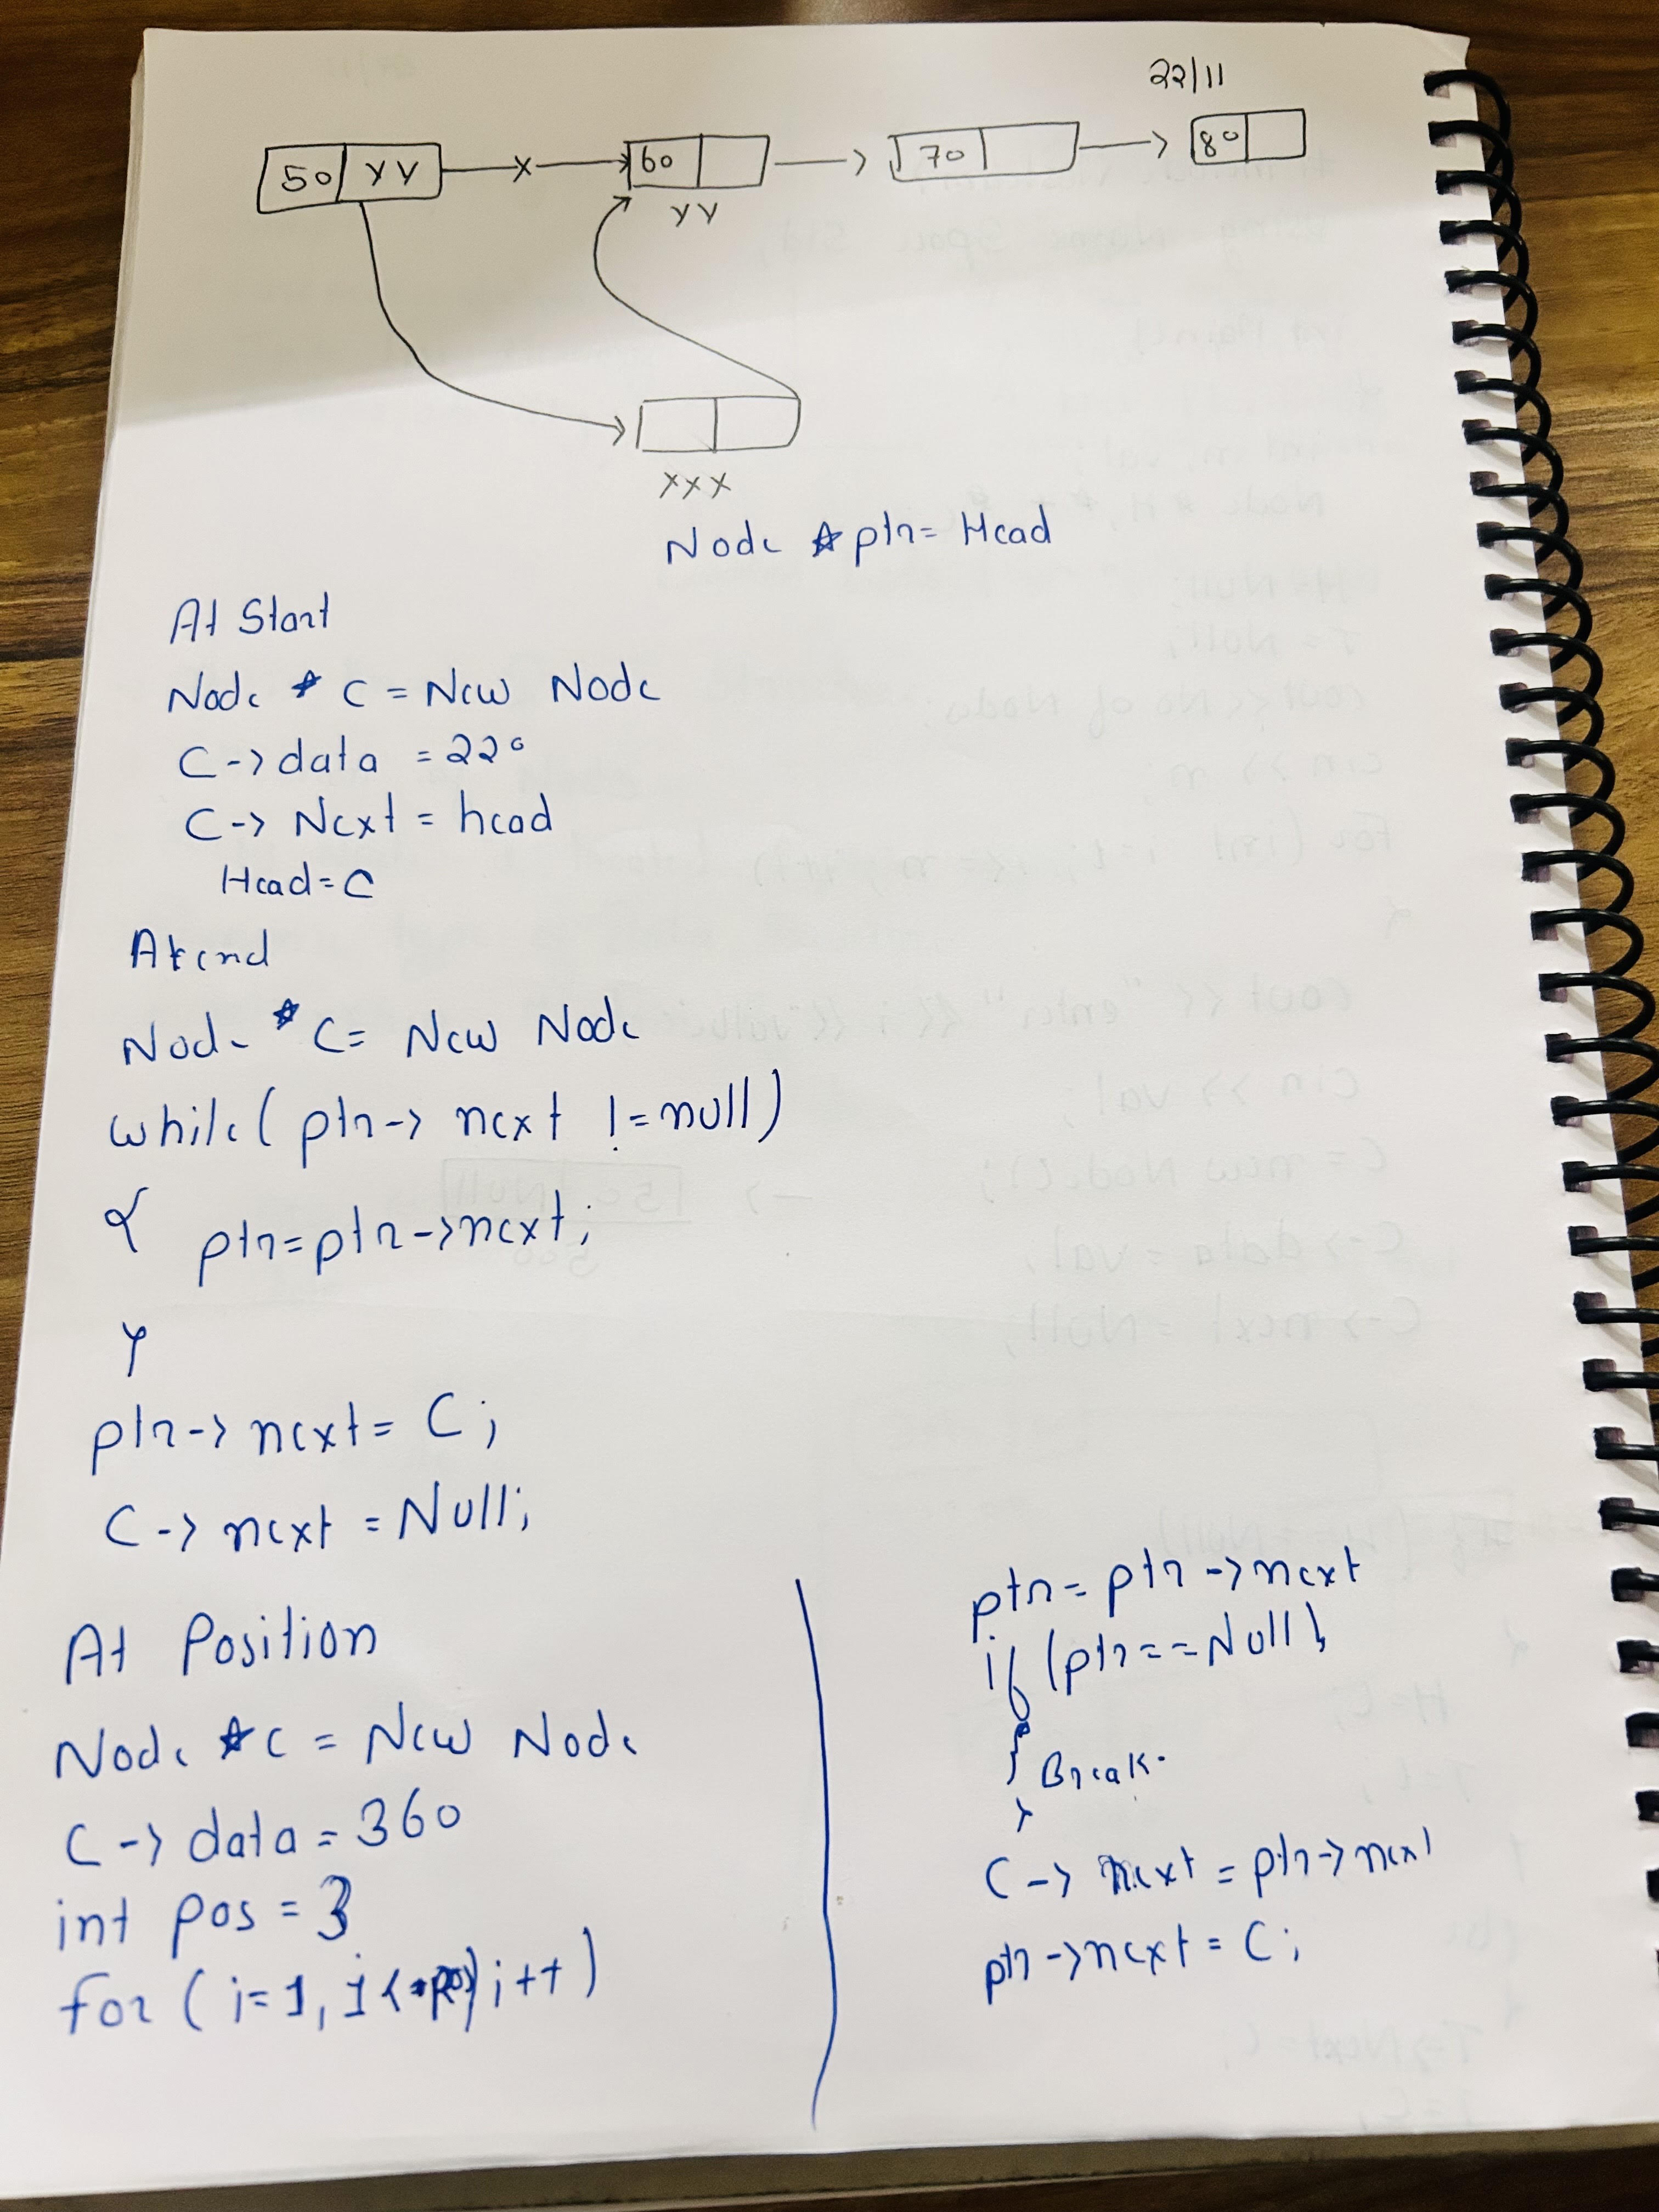 22/11
50 YY 60 70 80
YY
XXX
Node * ptr = Head
At Start
Node * C = New Node
C -> data = 220
C -> Next = head
Head = C
At end
Node * C = New Node
while ( ptr -> next != null )
{ ptr = ptr -> next ;
}
ptr -> next = C ;
C -> next = Null ;
At Position
Node * C = New Node
C -> data = 360
int pos = 3
for ( i = 1 , i < pos ) i++ )
ptr = ptr -> next
if ( ptr == Null )
{ Break .
}
C -> next = ptr -> next
ptr -> next = C ;